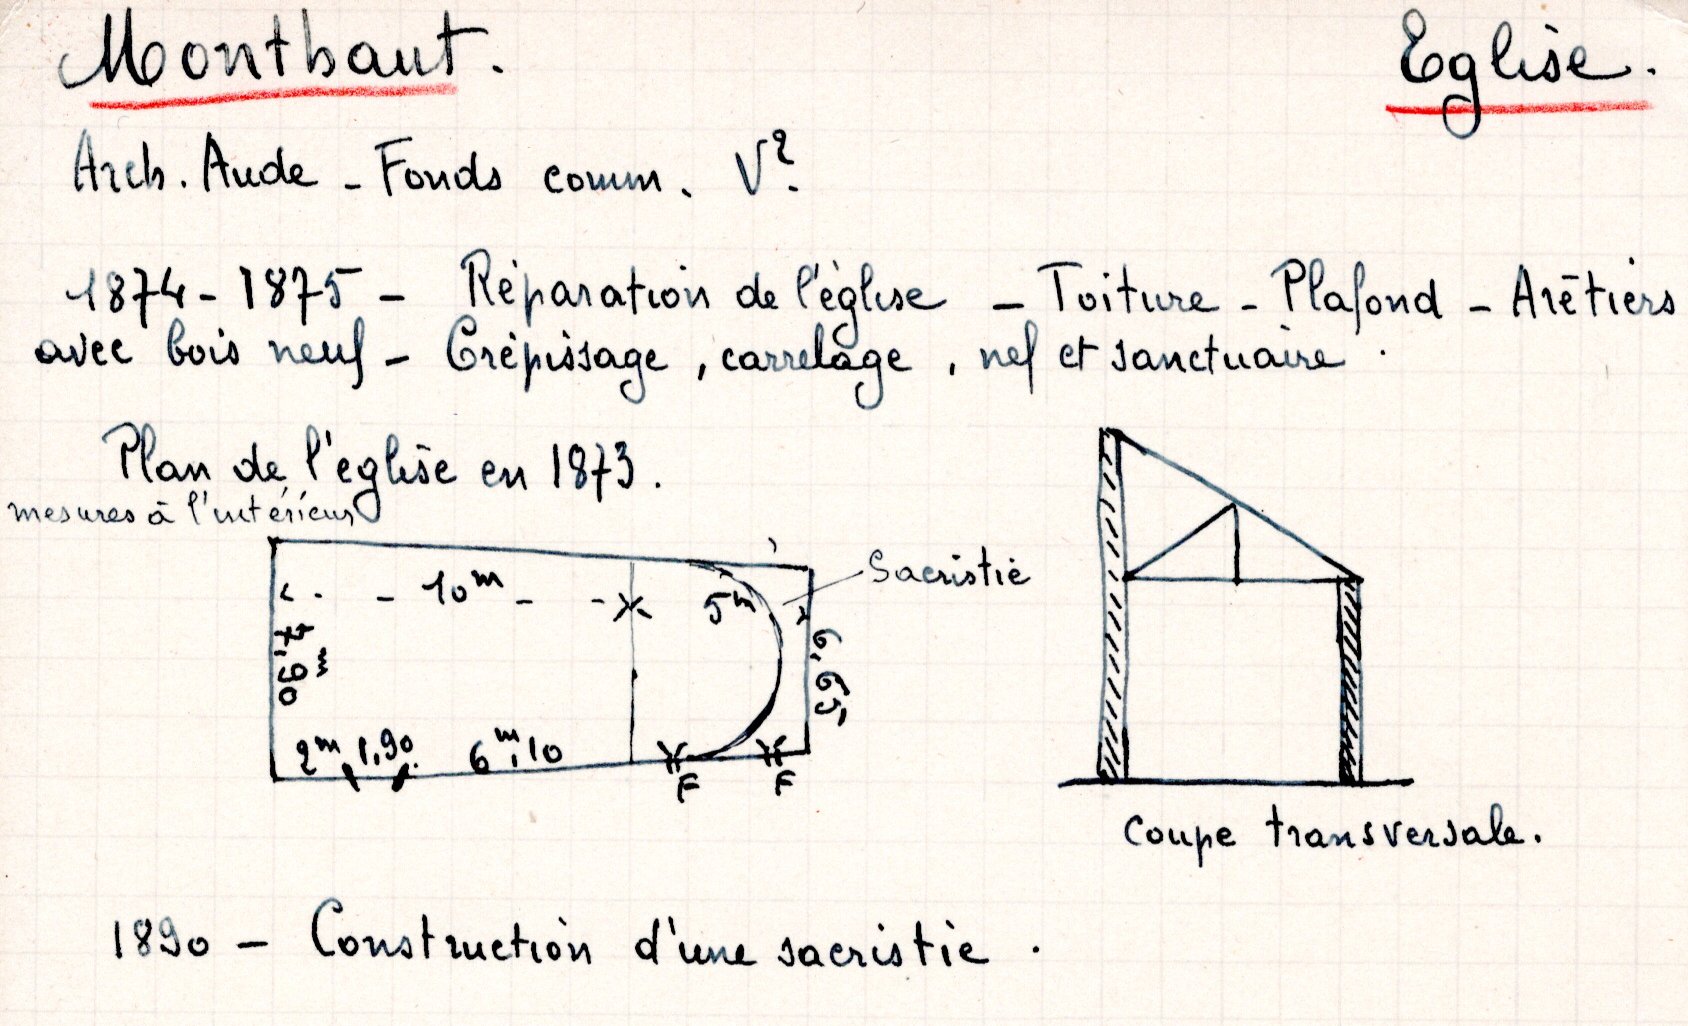 Monthaut. Eglise.
Arch. Aude - Fonds comm. V?
1874-1875 - Réparation de l'église - Toiture - Plafond - Arêtiers
avec bois neuf - Crépissage, carrelage, nef et sanctuaire.
Plan de l'église en 1873.
mesures à l'intérieur
10m
5m
Sacristie
7,90m
6,65
2m 1,90 6m,10
F F
coupe transversale.
1890 - Construction d'une sacristie.